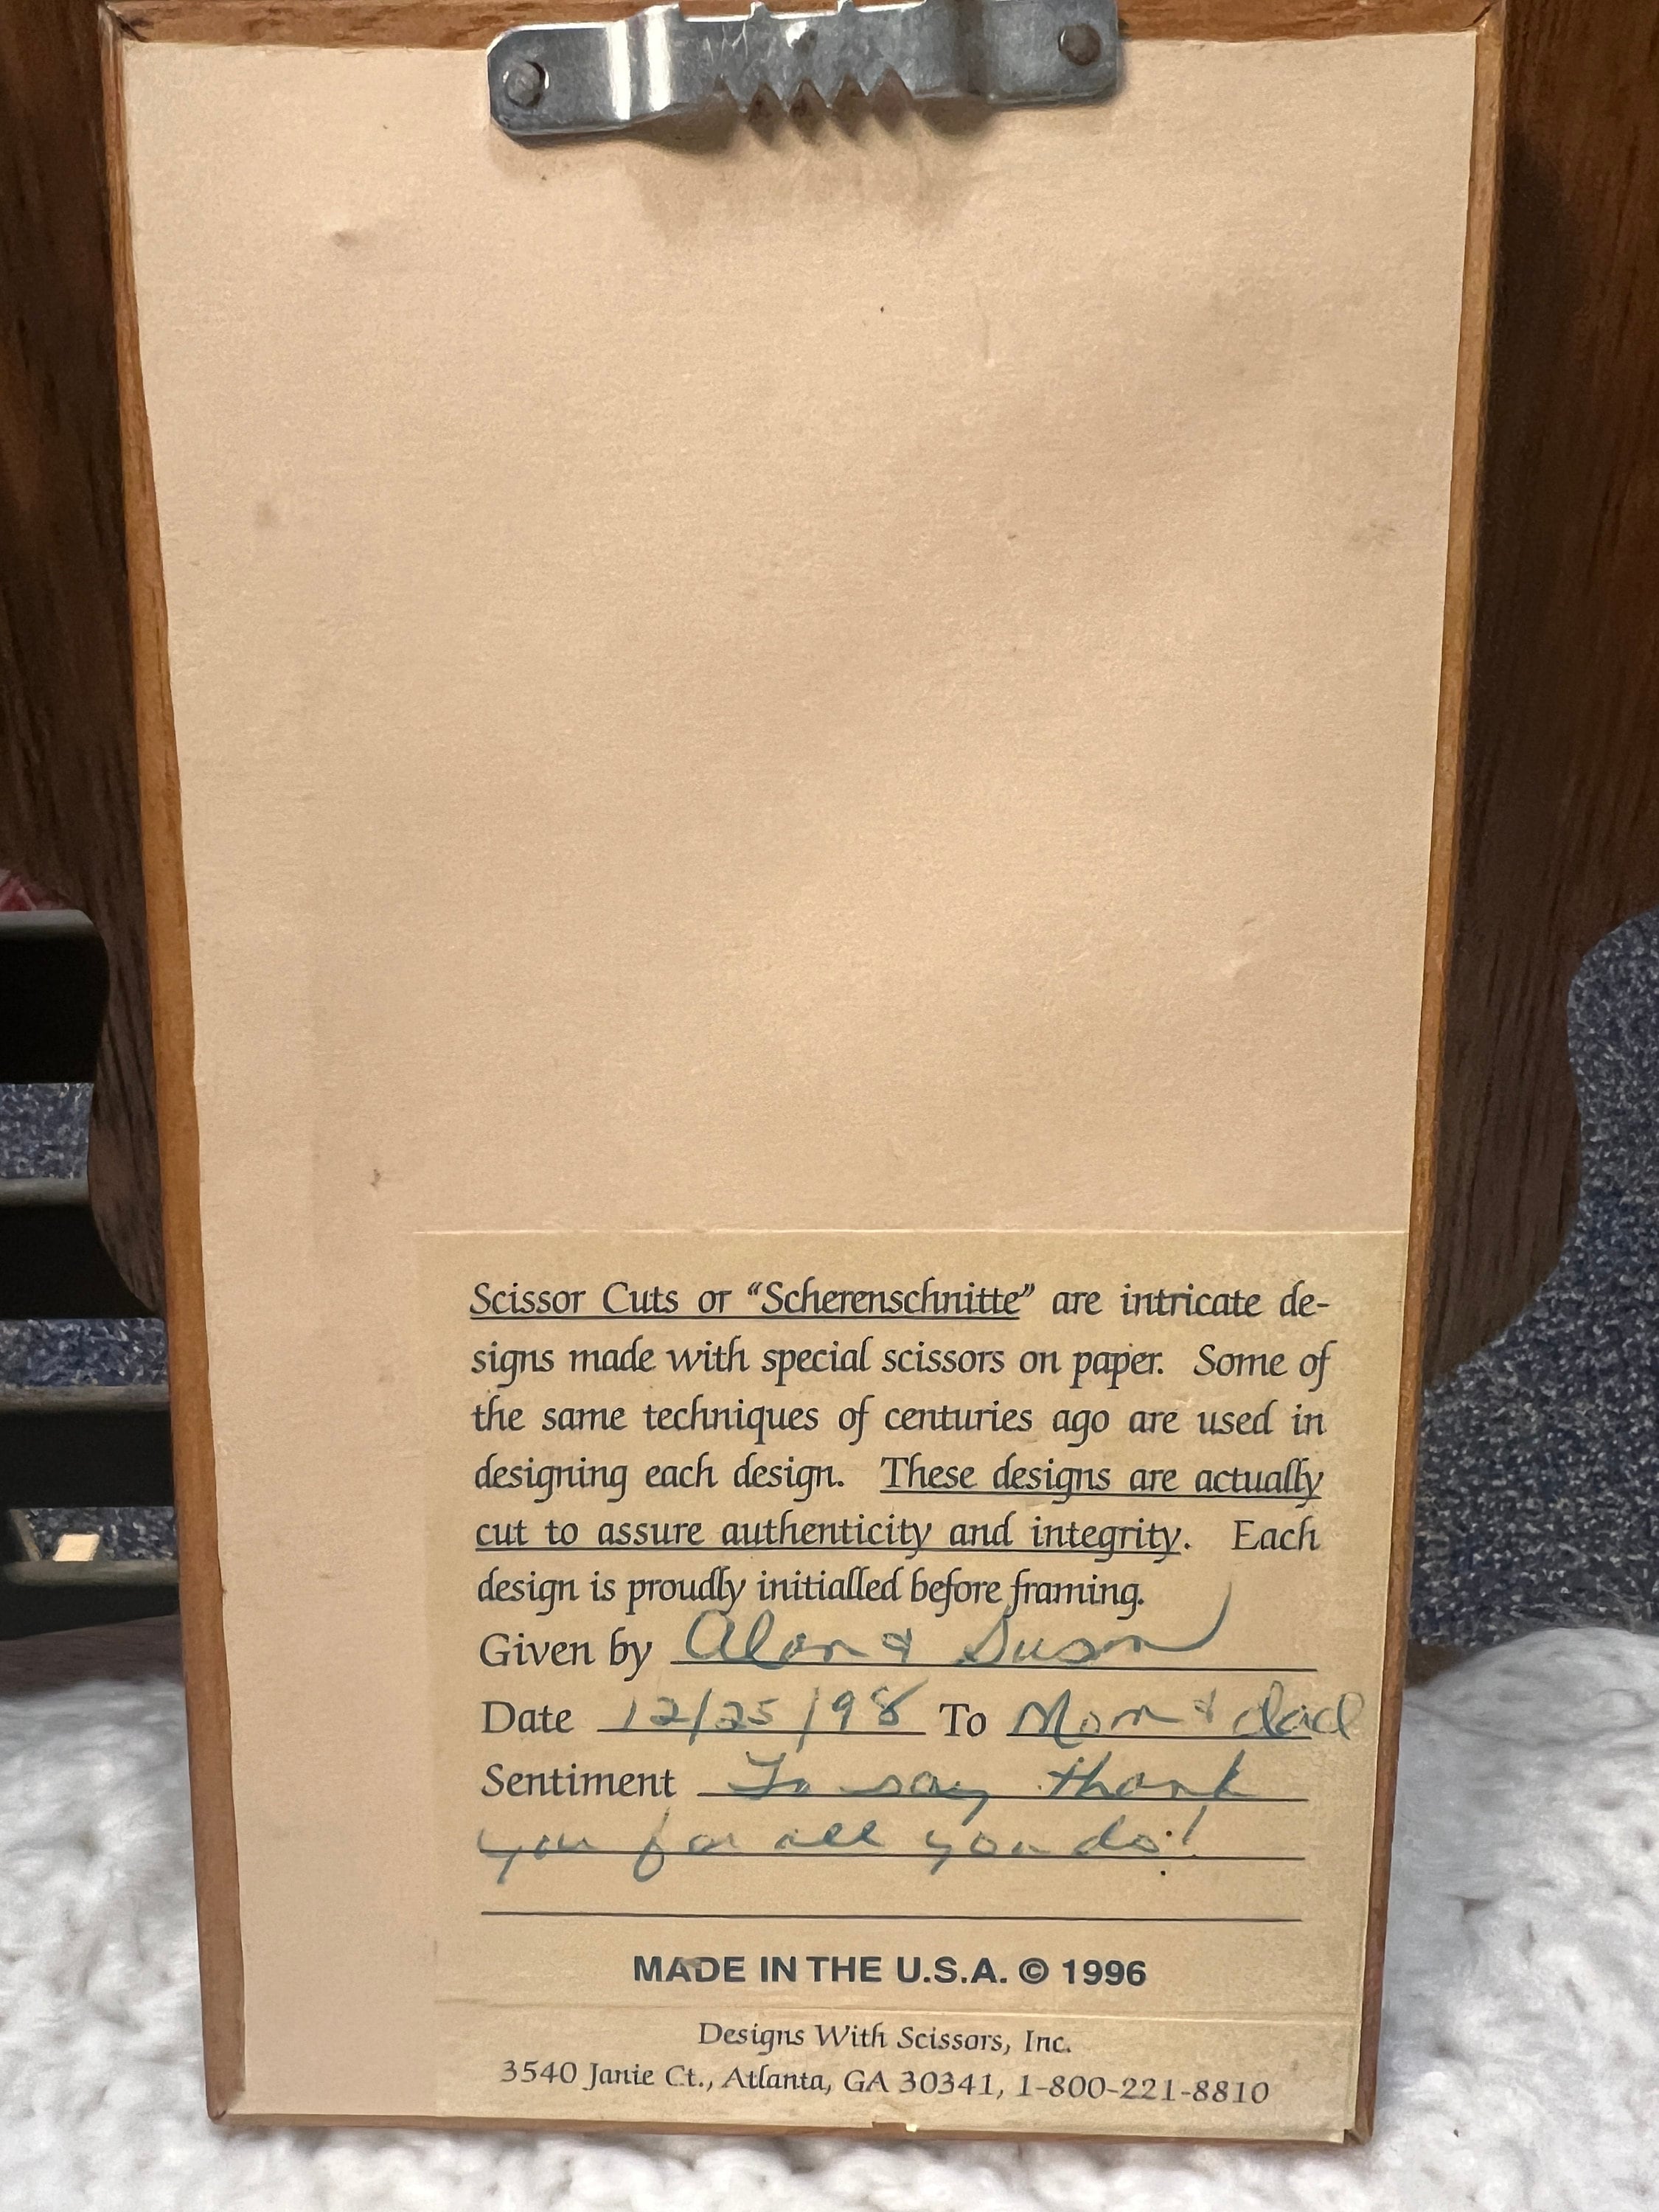 Scissor Cuts or “Scherenschnitte” are intricate de-
signs made with special scissors on paper. Some of
the same techniques of centuries ago are used in
designing each design. These designs are actually
cut to assure authenticity and integrity. Each
design is proudly initialled before framing.
Given by Alan & Susan
Date 12/25/98 To Mom & dad
Sentiment To say thank
you for all you do!
MADE IN THE U.S.A. © 1996
Designs With Scissors, Inc.
3540 Janie Ct., Atlanta, GA 30341, 1-800-221-8810